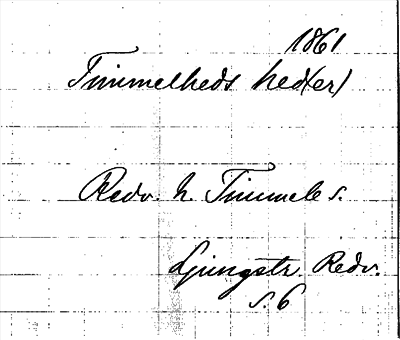 1861
Timmelheds hed(er)
Redv. h. Timmele s.
Ljungstr. Redv.
s. 6